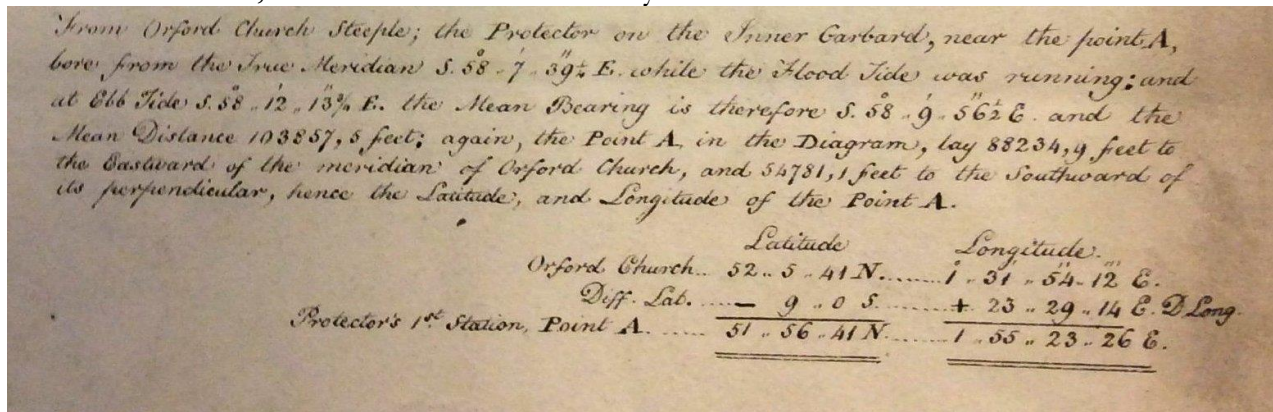 From Orford Church Steeple; the Protector on the Inner Garbard, near the point A,
bore from the True Meridian S. 58° . 7′ . 39″½ E. while the Flood Tide was running: and
at Ebb Tide S. 58° .. 12′ .. 13″¾ E. the Mean Bearing is therefore S. 58° .. 9′ .. 56″½ E. and the
Mean Distance 103857,5 feet; again, the Point A, in the Diagram, lay 88234,9 feet to
the Eastward of the meridian of Orford Church, and 54781,1 feet to the Southward of
its perpendicular, hence the Latitude, and Longitude of the Point A.
Latitude Longitude.
Orford Church... 52 .. 5 .. 41 N. ........ 1° .. 31′ .. 54″ .. 12‴ E.
Diff. Lat. ...... — 9 .. 0 S. ......... + 23 .. 29 .. 14 E. D Long.
Protector's 1st Station, Point A. ...... 51 .. 56 .. 41 N. ....... 1 .. 55 .. 23 .. 26 E.